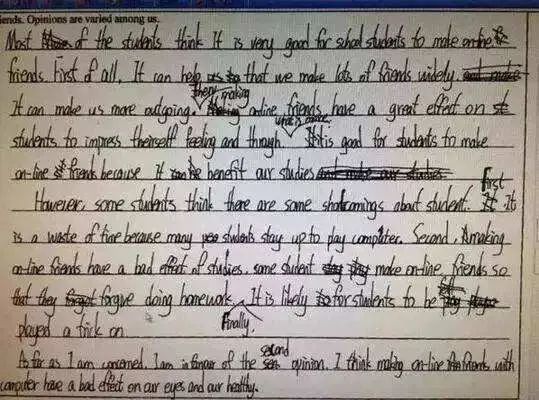 iends. Opinions are varied among us.
Most of the students think It is very good for school students to make on-line
friends. First of all, It can help us that we make lots of friends widely.
It can make us more outgoing. Then, making on-line friends have a great effect on
students to impress theirself feeling and through. what's more, It is good for students to make
on-line friends because It can be benefit our studies
However, some students think there are some shortcomings about student. First It
is a waste of time because many students stay up to play computer. Second, making
on-line friends have a bad effect of studies. some student make on-line friends so
that they forgive doing homework. Finally, It is likely for students to be
played a trick on
As far as I am concerned, I am in favour of the second opinion. I think making on-line friends with
computer have a bad effect on our eyes and our healthy.